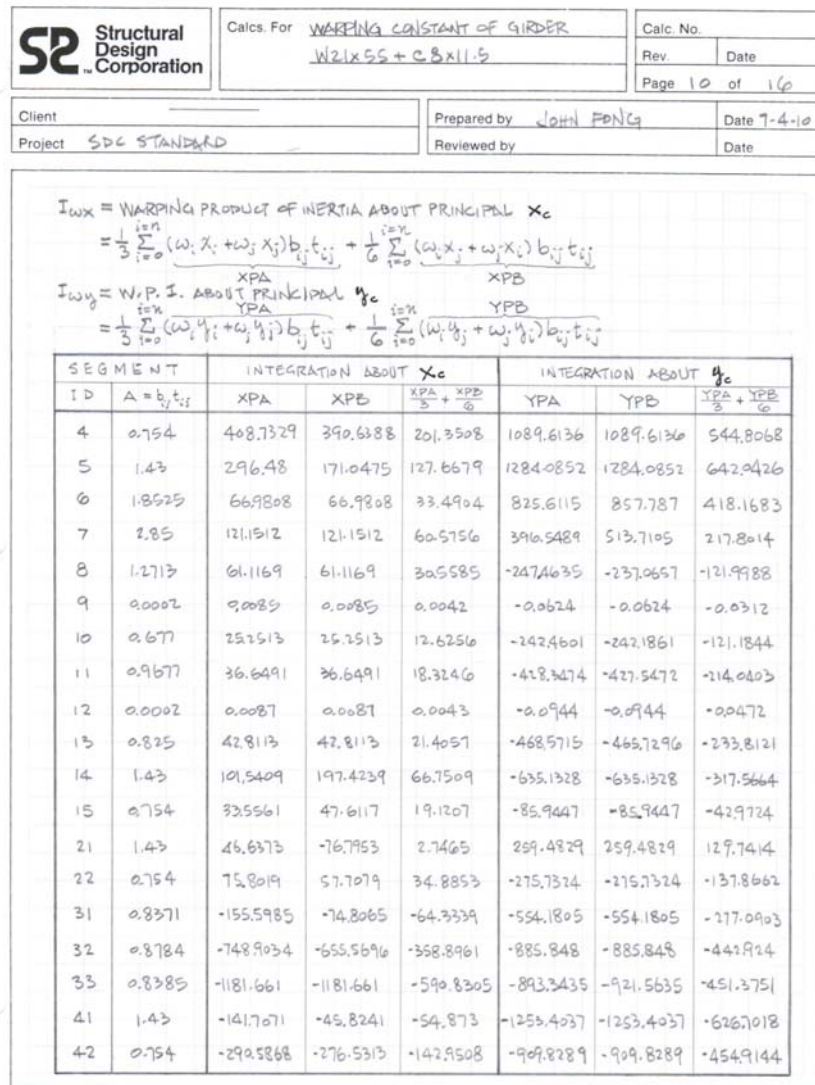 SD Structural Design Corporation
Calcs. For WARPING CONSTANT OF GIRDER
W21x55 + C8x11.5
Calc. No.
Rev. Date
Page 10 of 16
Client
Prepared by JOHN FONG Date 7-4-10
Project SDC STANDARD
Reviewed by Date
Iωx = WARPING PRODUCT OF INERTIA ABOUT PRINCIPAL xc
= 1/3 Σ(i=0 to i=n) (ωi xi + ωj xj) bij tij + 1/6 Σ(i=0 to i=n) (ωi xj + ωj xi) bij tij
XPA XPB
Iωy = W.P.I. ABOUT PRINCIPAL yc
YPA YPB
= 1/3 Σ(i=0 to i=n) (ωi yi + ωj yj) bij tij + 1/6 Σ(i=0 to i=n) (ωi yj + ωj yi) bij tij
SEGMENT INTEGRATION ABOUT xc INTEGRATION ABOUT yc
ID A = bij tij XPA XPB XPA/3 + XPB/6 YPA YPB YPA/3 + YPB/6
4 0.754 408.7329 390.6388 201.3508 1089.6136 1089.6136 544.8068
5 1.43 296.48 171.0475 127.6679 1284.0852 1284.0852 642.0426
6 1.8525 66.9808 66.9808 33.4904 825.6115 857.787 418.1683
7 2.85 121.1512 121.1512 60.5756 396.5489 513.7105 217.8014
8 1.2713 61.1169 61.1169 30.5585 -247.4635 -237.0657 -121.9988
9 0.0002 0.0085 0.0085 0.0042 -0.0624 -0.0624 -0.0312
10 0.677 25.2513 25.2513 12.6256 -242.4601 -242.1861 -121.1844
11 0.9677 36.6491 36.6491 18.3246 -428.3474 -427.5472 -214.0403
12 0.0002 0.0087 0.0087 0.0043 -0.0944 -0.0944 -0.0472
13 0.825 42.8113 42.8113 21.4057 -468.5715 -465.7296 -233.8121
14 1.43 101.5409 197.4239 66.7509 -635.1328 -635.1328 -317.5664
15 0.754 33.5561 47.6117 19.1207 -85.9447 -85.9447 -42.9724
21 1.43 46.6373 -76.7953 2.7465 259.4829 259.4829 129.7414
22 0.754 75.8019 57.7079 34.8853 -275.7324 -275.7324 -137.8662
31 0.8371 -155.5985 -74.8065 -64.3339 -554.1805 -554.1805 -277.0903
32 0.8784 -748.9034 -655.5696 -358.8961 -885.848 -885.848 -442.924
33 0.8385 -1181.661 -1181.661 -590.8305 -893.3435 -921.5635 -451.3751
41 1.43 -141.7071 -45.8241 -54.873 -1253.4037 -1253.4037 -626.7018
42 0.754 -290.5868 -276.5313 -142.9508 -909.8289 -909.8289 -454.9144